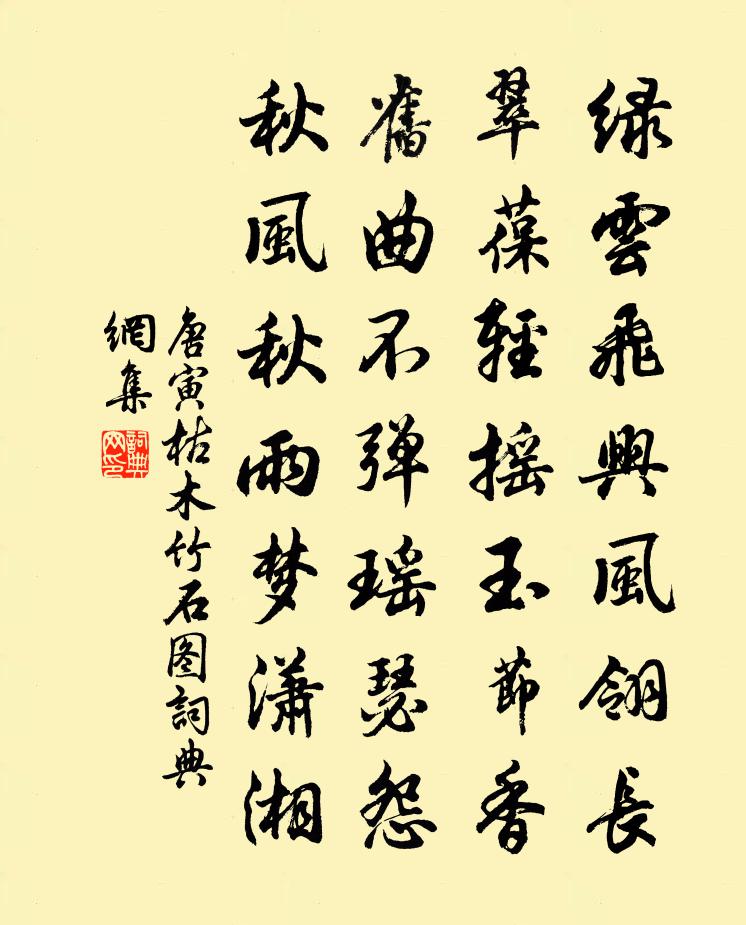 绿雲飛興風翎長
翠葆輕摇玉節香
舊曲不弹瑶瑟怨
秋風秋雨梦潇湘
唐寅枯木竹石图詞典
網集
詞典
网印